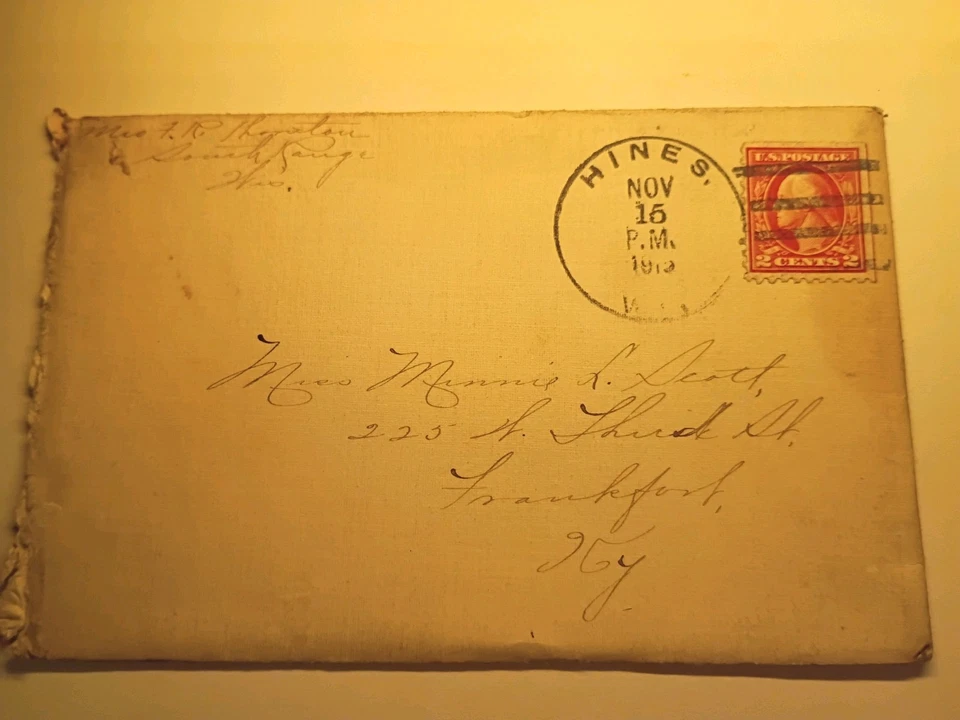 Mrs F. R. Thornton
South Range
Wis.
HINES,
NOV
15
P.M.
U.S. POSTAGE
2 CENTS 2
Miss Minnie L. Scott,
225 W. Third St.
Frankfort,
Ky